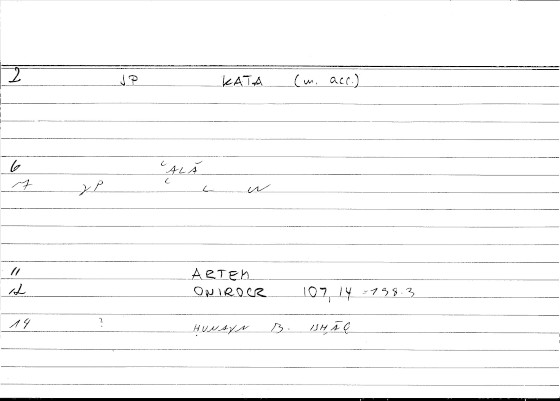 2 JP KATA (w. acc.)
6 ʿALĀ
7 JP ʿ L W
11 ARTEM
12 ONIROCR 107,14 = 198.3
14 ? ḤUNAYN B. ISḤĀQ